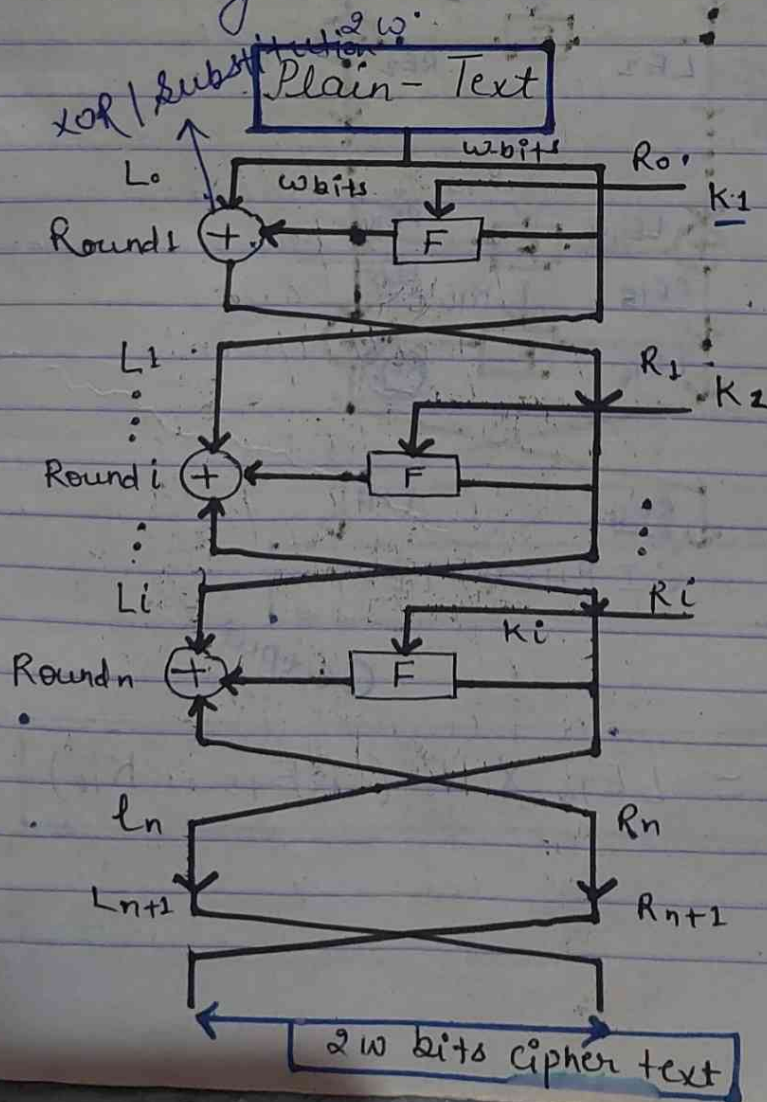 2w
XOR / Substitution
Plain-Text
w-bits
R0
L0
w bits
K1
Round1
+
F
L1
R1
K2
Round i
+
F
Li
Ri
Ki
Roundn
+
F
ln
Rn
Ln+1
Rn+1
2w bits cipher text